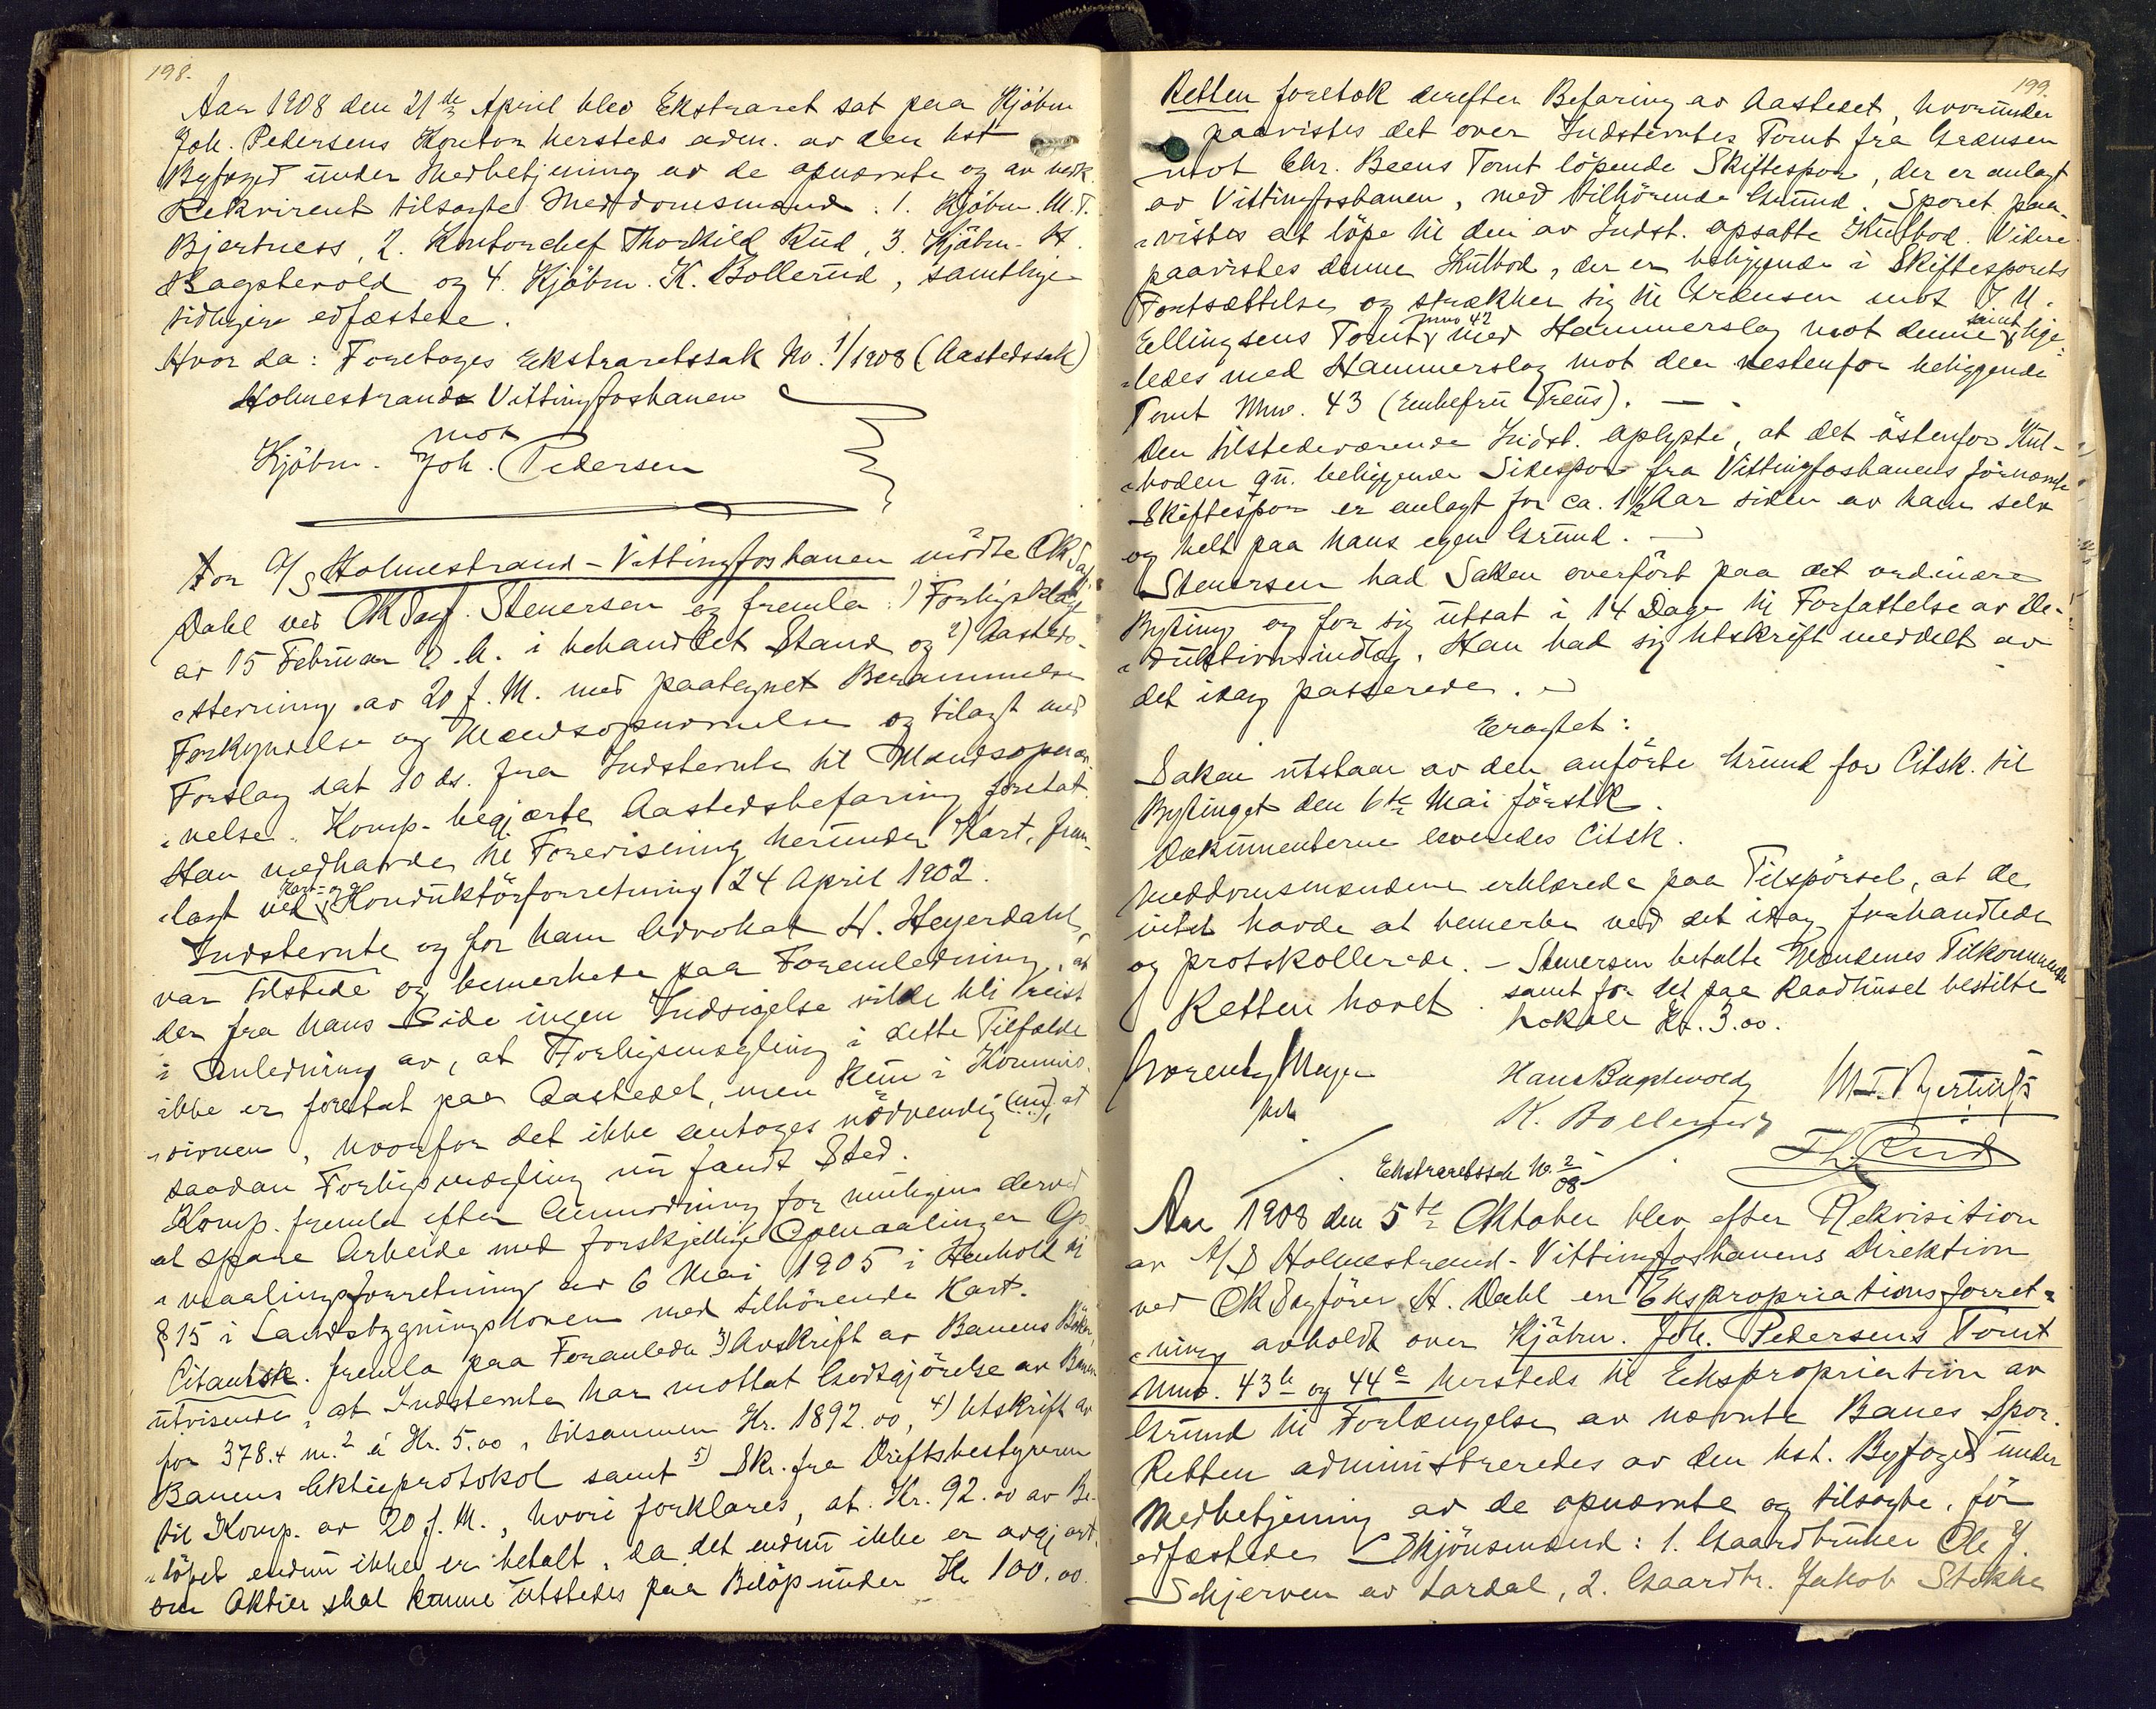 198.
Aar 1908 den 21de April blev Ekstraret sat paa Kjöbm
Joh. Pedersens Kontor hersteds adm. av den kst
Byfoged under Medbetjening av de opnævnte og av vedk.
Rekvirent tilsagte Meddomsmænd: 1. Kjöbm. M. T.
Bjertness, 2. Kontorchef Thorkild Rud, 3. Kjöbm. H.
Bagstevold og 4. Kjöbm. K. Bollerud, samtlige
tidligere edfæstede.
Hvor da: Foretoges Ekstraretssak No. 1/1908 (Aastedssak)
Holmestrands Vittingfosbanen
mot
Kjöbm. Joh. Pedersen
For A/S Holmestrand-Vittingfosbanen mödte ORSagf.
Dahl ved ORSagf. Stenersen og fremla: 1) Forligsklage
av 15 Februar d. A. i behandlet Stand og 2) Aasteds-
stevning av 20 f. M. med paategnet Berammelse
Forkyndelse og Mændsopnævnelse og tilagt med
Forslag dat 10 ds. fra Indstevnte til Mændsopnæv-
nelse. Komp. begjærte Aastedsbefaring foretat.
Han medhavde til Forevisning herunder Kart, frem-
lagt ved Kart- og Konduktörforretning 24 April 1902.
Indstevnte og for ham Advokat H. Heyerdahl,
var tilstede og bemerkede paa Foranledning, at
der fra hans Side ingen Indsigelse vilde bli reist
i Anledning av, at Forligsmegling i dette Tilfælde
ikke er foretat paa Aastedet, men kun i Kommis-
sionen, hvorfor det ikke antoges nödvendig (nu), at
saadan Forligsmegling nu fandt Sted.
Komp. fremla efter Anmodning for muligens derved
at spare Arbeide med forskjellige Opmaalinger Op-
maalingsforretning av 6 Mai 1905 i Henhold til
§ 15 i Landsbygningsloven med tilhörende Kart.
Citantsk. fremla paa Foranledn 3) Avskrift av Banens Böker,
utvisende, at Indstevnte har mottat Godtgjörelse av Banen
for 378.4 m.2 á Kr. 5.00, tilsammen Kr. 1892.00, 4) Utskrift av
Banens Aktieprotokol samt 5) Skr. fra Driftsbestyreren
til Komp. av 20 f. M., hvori forklares, at Kr. 92.00 av Be-
löpet endnu ikke er betalt, da det endnu ikke er avgjort,
om Aktier skal kunne utstedes paa Belöp under Kr 100.00.
199.
Retten foretok derefter Befaring av Aastedet, hvorunder
paavistes det over Indstevntes Tomt fra Grænsen
mot Chr. Beens Tomt löpende Skiftespor, der er anlagt
av Vittingfosbanen, med tilhörende Grund. Sporet paa-
vistes at löpe til den av Indst. opsatte Kulbod. Videre
paavistes denne Kulbod, der er beliggende i Skiftesporets
Fortsættelse og strækker sig til Grænsen mot J. M.
Ellingsens Tomt mno 42 med Hammerslag mot denne samt lige-
ledes med Hammerslag mot den vestenfor beliggende
Tomt Mno. 43 (Enkefru Freus). —
Den tilstedeværende Indst. oplyste, at det östenfor Kul-
boden gu. beliggende Sidespor fra Vittingfosbanens förnævnte
Skiftespor er anlagt for ca. 1 1/2 Aar siden av ham selv
og helt paa hans egen Grund. —
Stenersen bad Saken overfört paa det ordinære
Byting og for sig utsat i 14 Dage til Forfattelse av De-
duktionsindlæg. Han bad sig Utskrift meddelt av
det idag passerede.
Eragtet:
Saken utstaar av den anförte Grund for Citsk. til
Bytinget den 6te Mai förstk.
Dokumenterne leveredes Citsk.
Meddomsmændene erklærede paa Tilspörsel, at de
intet havde at bemerke ved det idag forhandlede
og protokollerede. – Stenersen betalte Mændenes Tilkommende
samt for det paa Raadhuset bestilte
Lokale Kr. 3.00.
Retten hævet.
Meyer
Hans Bagstevold
M. T. Bjertness
K. Bollerud
Th. Rud
Ekstraretssak No. 2/08
Aar 1908 den 5te Oktober blev efter Rekvisition
av A/S Holmestrand-Vittingfosbanens Direktion
ved ORSagförer H. Dahl en Ekspropriationsforret-
ning avholdt over Kjöbm. Joh. Pedersens Tomt
Mno. 43b og 44a hersteds til Ekspropriation av
Grund til Forlængelse av nævnte Banes Spor.
Retten administreredes av den kst. Byfoged under
Medbetjening av de opnævnte og tilsagte, för
edfæstede Skjönsmænd: 1. Gaardbruker Ole J.
Schjerven av Lardal, 2. Gaardbr. Jakob Stokke